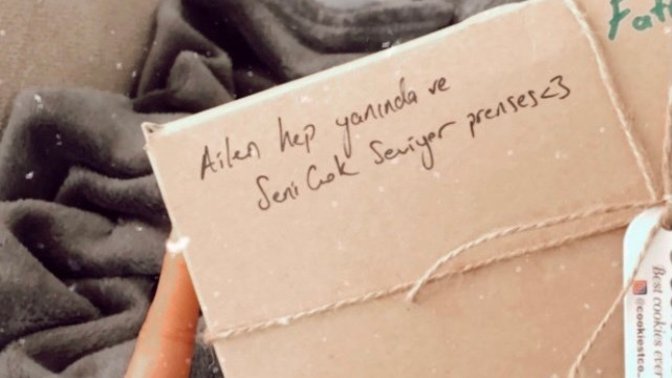 Ailen hep yanında ve
Seni Çok Seviyor prenses<3
Fat
Best cookies ever
@cookiestco